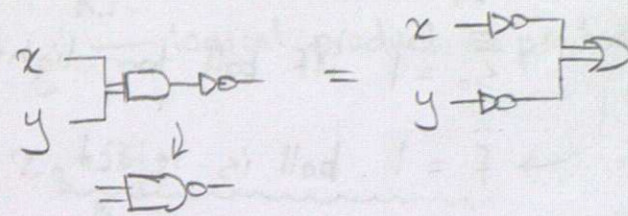 x
y
=
x
y